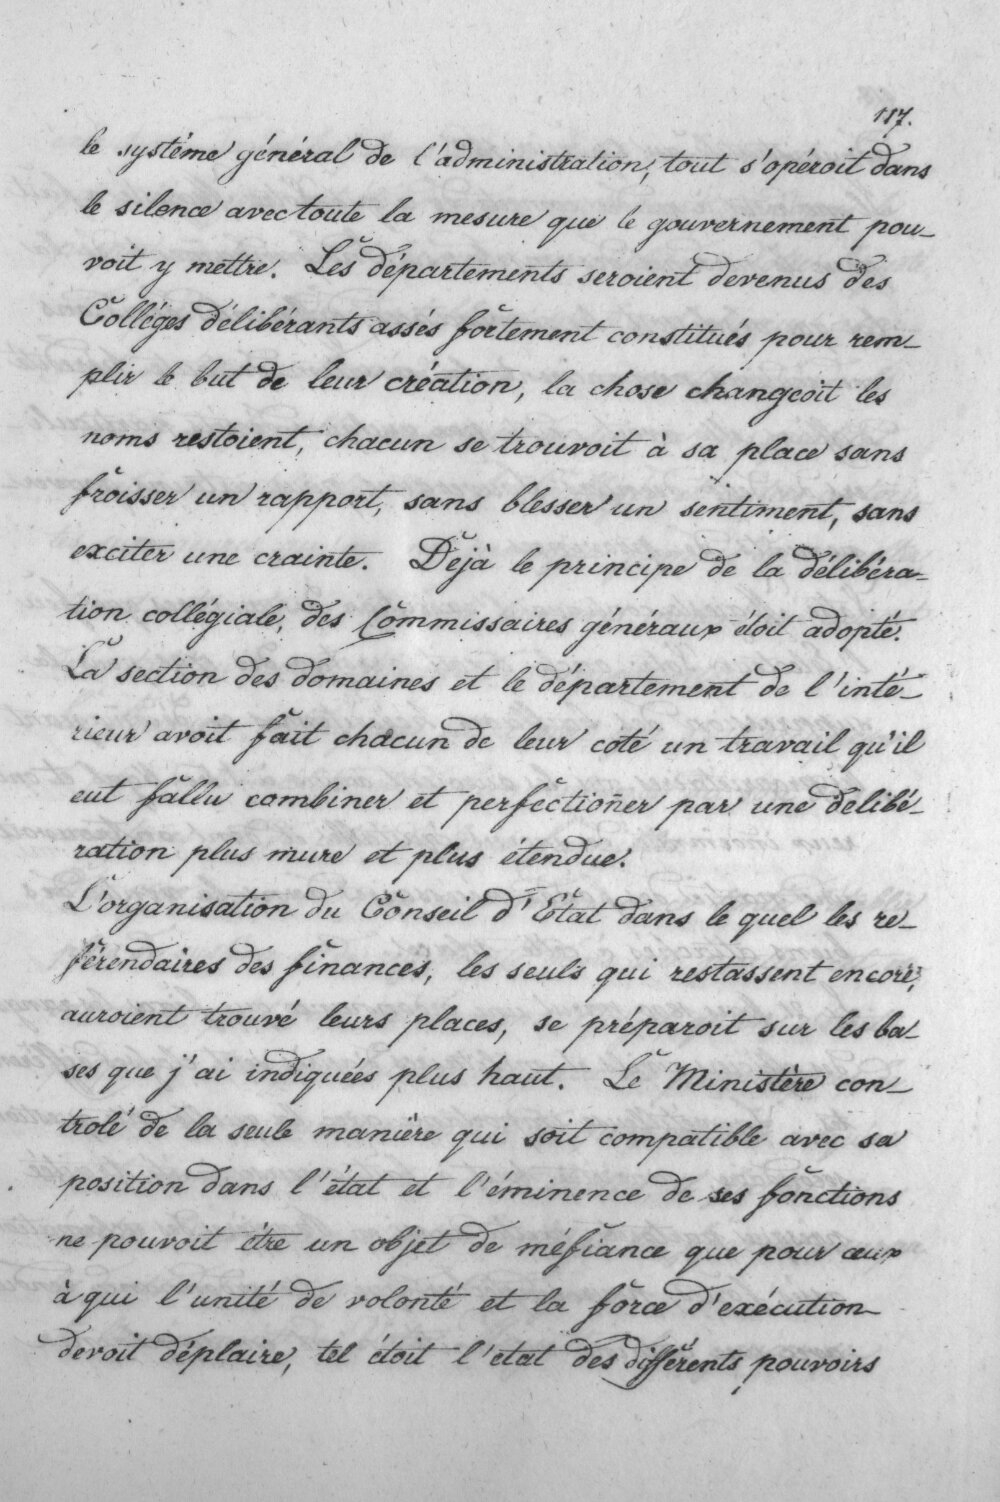 117.
le systéme général de l'administration, tout s'opéroit dans
le silence avec toute la mesure que le gouvernement pou-
voit y mettre. Les départements seroient devenus des
Colléges délibérants assés fortement constitués pour rem-
plir le but de leur création, la chose changeoit les
noms restoient, chacun se trouvoit à sa place sans
froisser un rapport, sans blesser un sentiment, sans
exciter une crainte. Déjà le principe de la délibéra-
tion collégiale, des Commissaires généraux étoit adopté.
La section des domaines et le département de l'inté-
rieur avoit fait chacun de leur coté un travail qu'il
eut fallu combiner et perfectioñer par une delibé-
ration plus mure et plus étendue.
L'organisation du Conseil d'Etat dans le quel les re-
férendaires des finances, les seuls qui restassent encore,
auroient trouvé leurs places, se préparoit sur les ba-
ses que j'ai indiquées plus haut. Le Ministère con-
trolé de la seule manière qui soit compatible avec sa
position dans l'état et l'éminence de ses fonctions
ne pouvoit être un objet de méfiance que pour ceux
à qui l'unité de volonté et la force d'exécution
devoit déplaire, tel étoit l'etat des différents pouvoirs